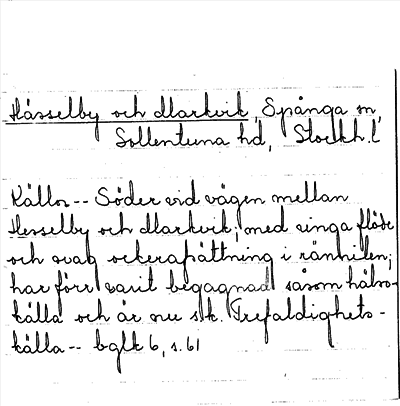 Hässelby och Markvik, Spånga sn,
Sollentuna hd, Stockh. l
Källor -- Söder vid vägen mellan
Hesselby och Markvik; med ringa flöde
och svag ockerafsättning i rännilen;
har förr varit begagnad såsom hälso-
källa och är nu s.k. Trefaldighets-
källa -- bglt 6, s. 61